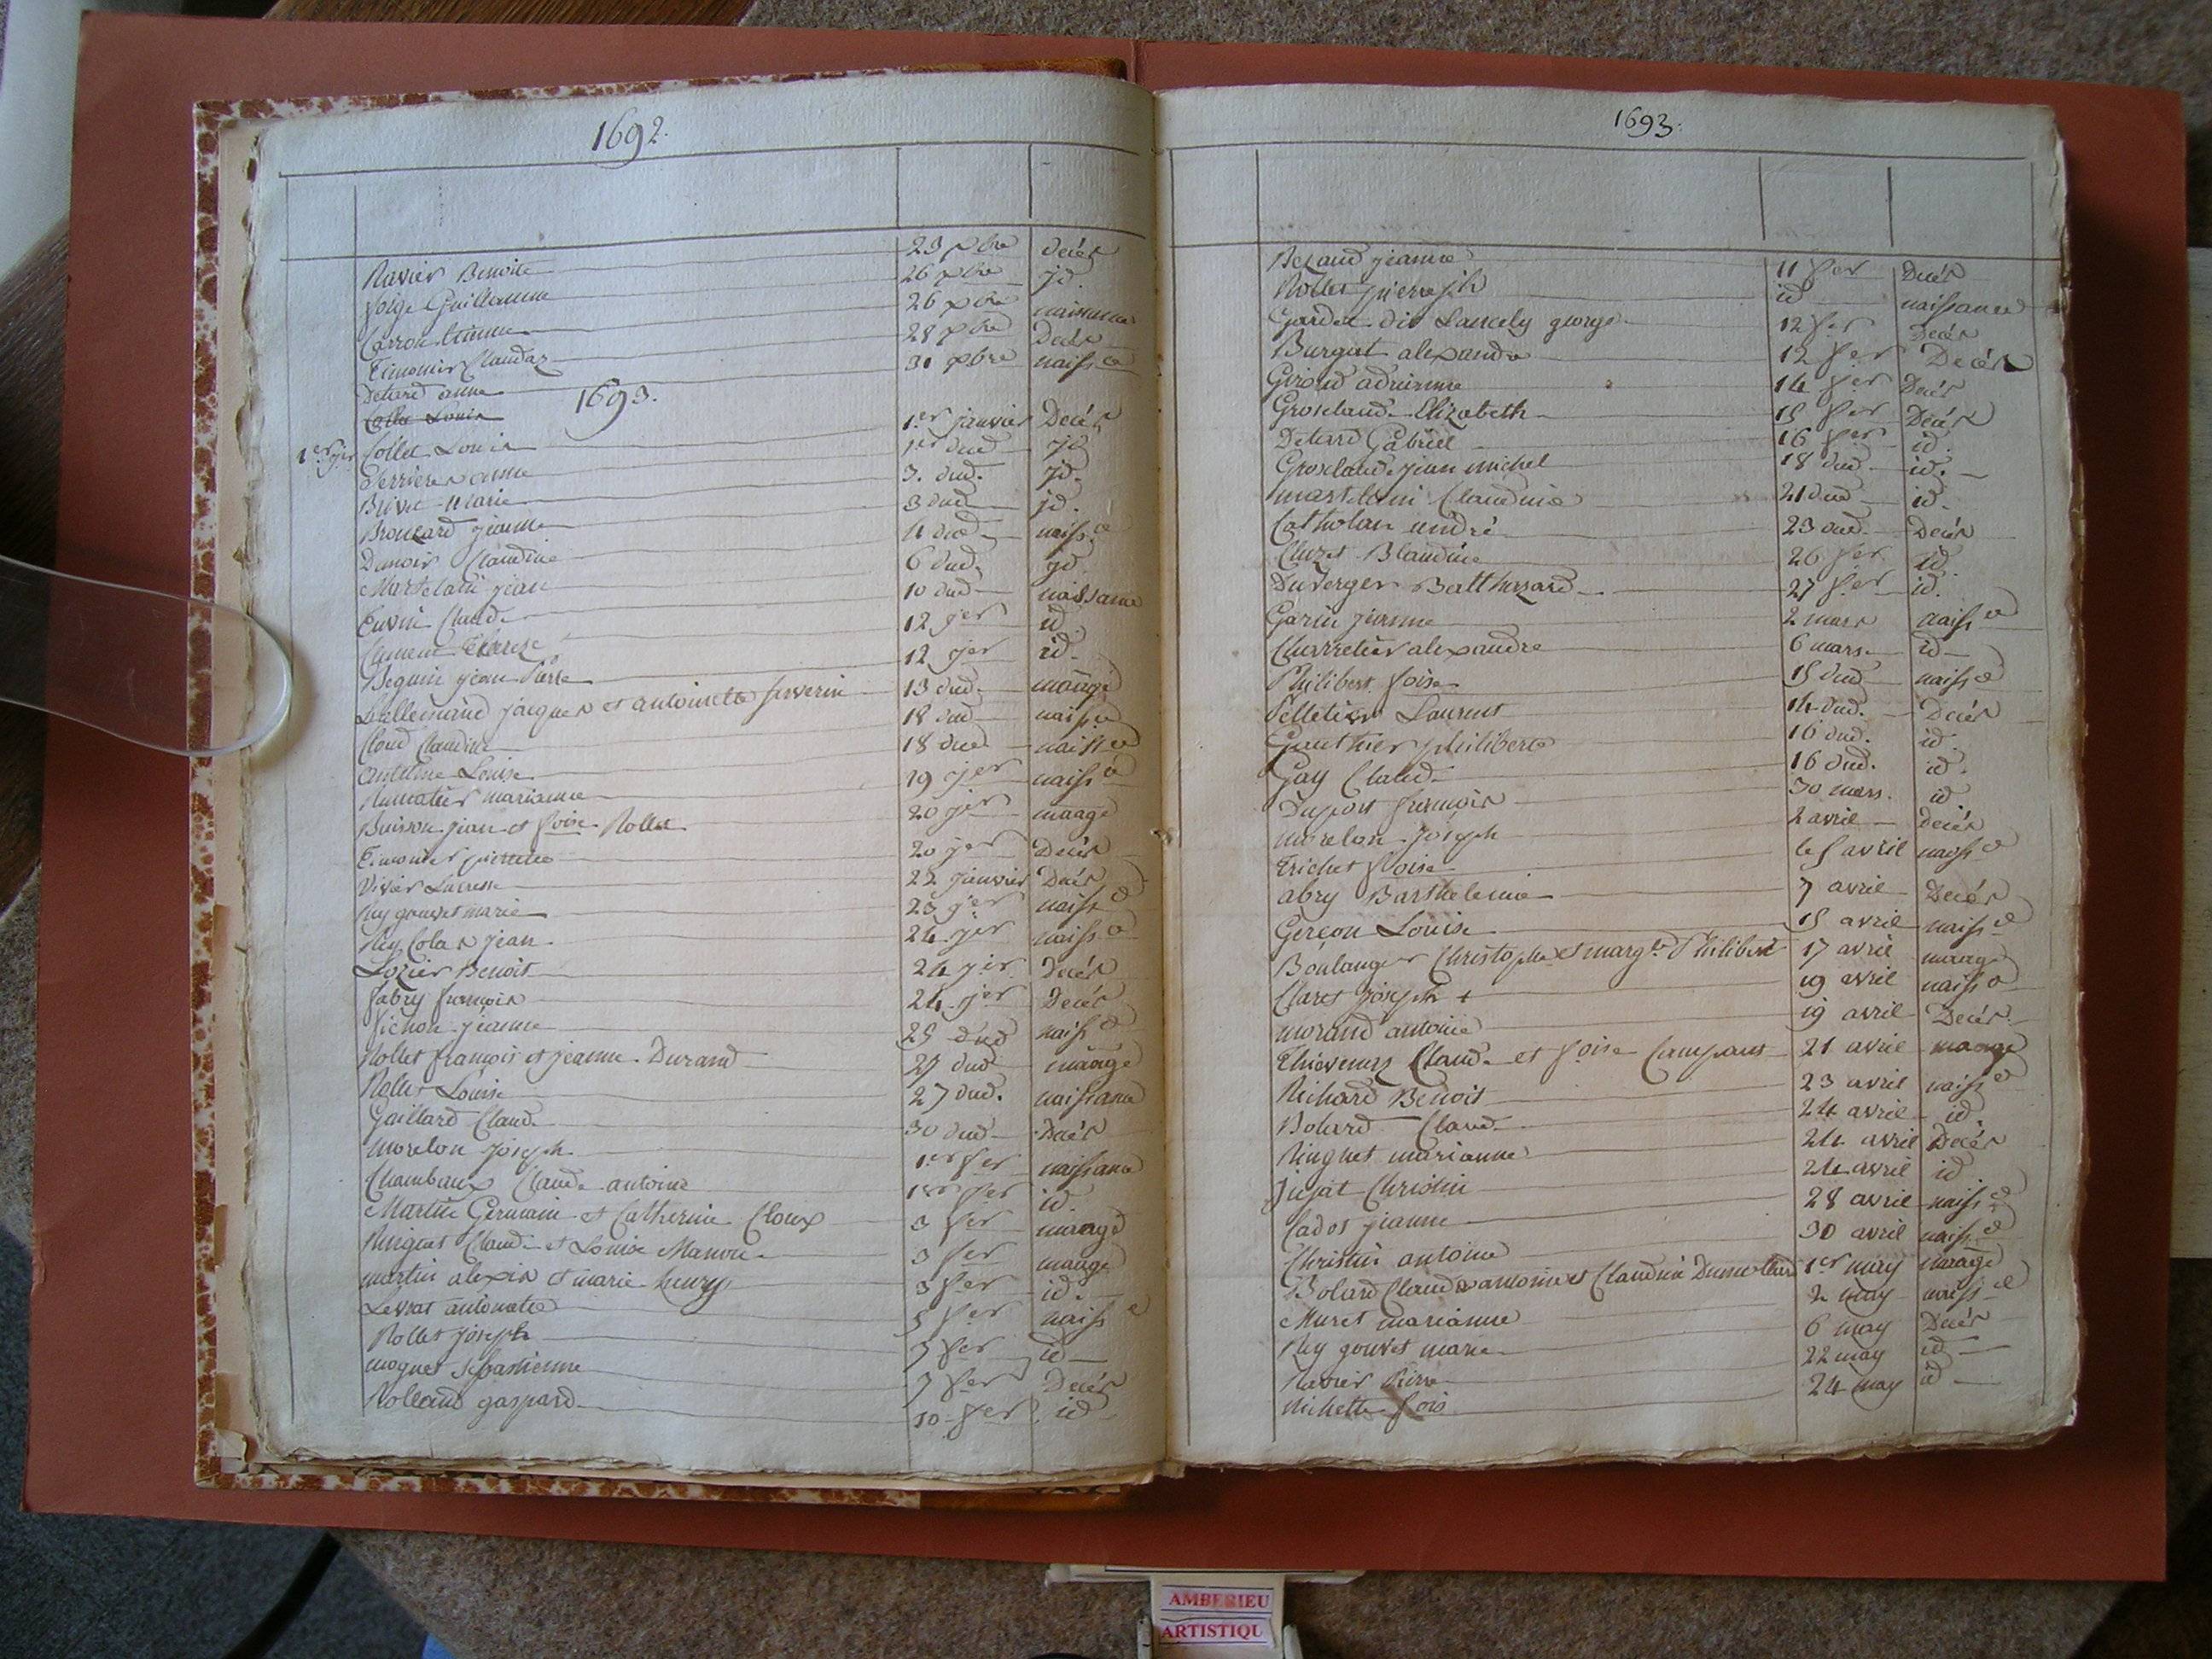 1692.
Ravier Benoite 23 xbre decés
Guillaume 26 xbre jd.
Carron 26 xbre naissance
Timonier Claudaz 28 xbre Decés
Detard anne 31 xbre naiss ce
Collet Louis
1693.
1er jer Collet Louis 1er janvier Decés
Ferrière anne 1er dud jd
Brivet Marie 3. dud. jd.
Brouzard jeanne 3 dud jd.
Dunoir Claudine 4 dud naiss. ce
Martelain jean 6 dud. jd.
Claude 10 dud naissance
Clement Therese 12 jer id.
Beguin jean Pierre 12 jer id.
Lallemand jacques et antoinette severin 13 dud. maage
Cloud Claudine 18 dud naiss ce
antelme Louise 18 dud naiss ce
marianne 19 jer naiss ce
Buisson jean et foise Rollet 20 jer maage
Timonier pierrette 20 jer Decés
Vivier Lucresse 22 janvier Decés
Rey gouvet marie 23 jer naiss ce
Rey Colas jean 24 jer naiss ce
Lozier Benoit 24 jer Decés
fabry françois 24 jer Decés
Pichon jeanne 25 dud naiss ce
Rollet françois et jeanne Durand 27 dud maage
Rollet Louise 27 dud. naissance
Gaillard Claude 30 dud Decés
Morelon joseph 1er fer naissance
Chambaux Claude antoine 1er fer id.
Martin Germain et Catherine Cloux 3 fer maage
Ringuet Claude et Louise Manon 3 fer maage
martin alexis et marie henry 3 fer id.
Levrat antoinette 5 fer naiss ce
Rollet joseph 7 fer id
moquet sebastienne 7 fer Decés
Rolland gaspard 10 fer id
1693.
Bezaud jeanne 11 fer Decés
Rollet pierre jh id naissance
Gardet dit Lancely george 12 fer Decés
Burgat alexandre 12 fer Decés
Giroud adrianne 14 fer Decés
Groscland Elizabeth 15 fer Decés
Detard Gabriel 16 fer id.
Groscland jean michel 18 dud id.
martelain Claudine 21 dud id.
Catholan andré 23 dud Decés
Cluzet Blandine 26 fer id.
Duverger Batthazard 27 fer id.
Garin jeanne 2 mars naiss ce
Charretier alexandre 6 mars id
Philibert foise 15 dud naiss ce
Pelletier Laurent 14 dud. Decés
Gauthier philiberte 16 dud. id.
Gay Claude 16 dud. id.
Dupont françois 30 mars. id.
morelon joseph 2 avril decés
Trichet foise le 5 avril naiss ce
abry Barthelemie 7 avril Decés
Gerçon Louise 15 avril naiss ce
Boulanger Christophe et margte Philibert 17 avril maage
Claret joseph + 19 avril naiss ce
morand antoine 19 avril Decés.
Claude et foise Campant 21 avril maage
Richard Benoit 23 avril naiss ce
Bolard Claude 24 avril id.
Ringuet marianne 24 avril Decés
Jujat Christin 24 avril id
Cados jeanne 28 avril naiss ce
Christin antoine 30 avril naiss ce
Bolard Claude antoine et Claudine Dumollard 1er may maage
Muret marianne 2 may naiss ce
Rey gouvet marie 6 may Decés
Ravier Pierre 22 may id
Michette fois 24 may id
AMBERIEU
ARTISTIQU